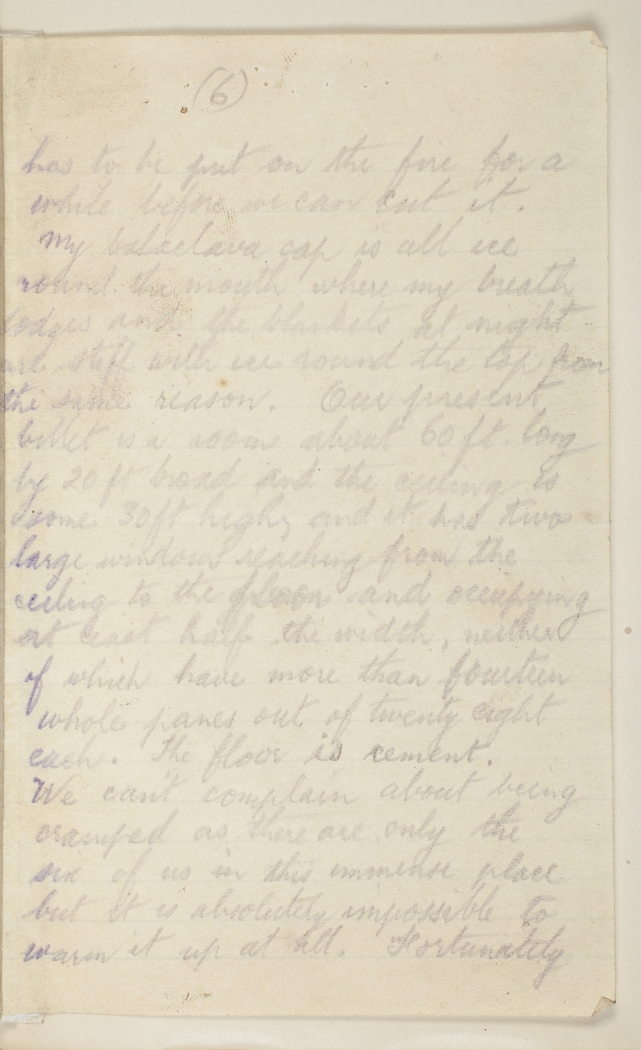 (6)
has to be put on the fire for a
while before we can cut it.
My balaclava cap is all ice
round the mouth where my breath
lodges and the blankets at night
are stiff with ice round the top from
the same reason. Our present
billet is a room about 60 ft long
by 20 ft broad and the ceiling is
some 30ft high, and it has two
large windows reaching from the
ceiling to the floor and occupying
at least half the width, neither
of which have more than fourteen
whole panes out of twenty eight
each. The floor is cement.
We can't complain about being
cramped as there are only the
six of us in this immense place
but it is absolutely impossible to
warm it up at all. Fortunately